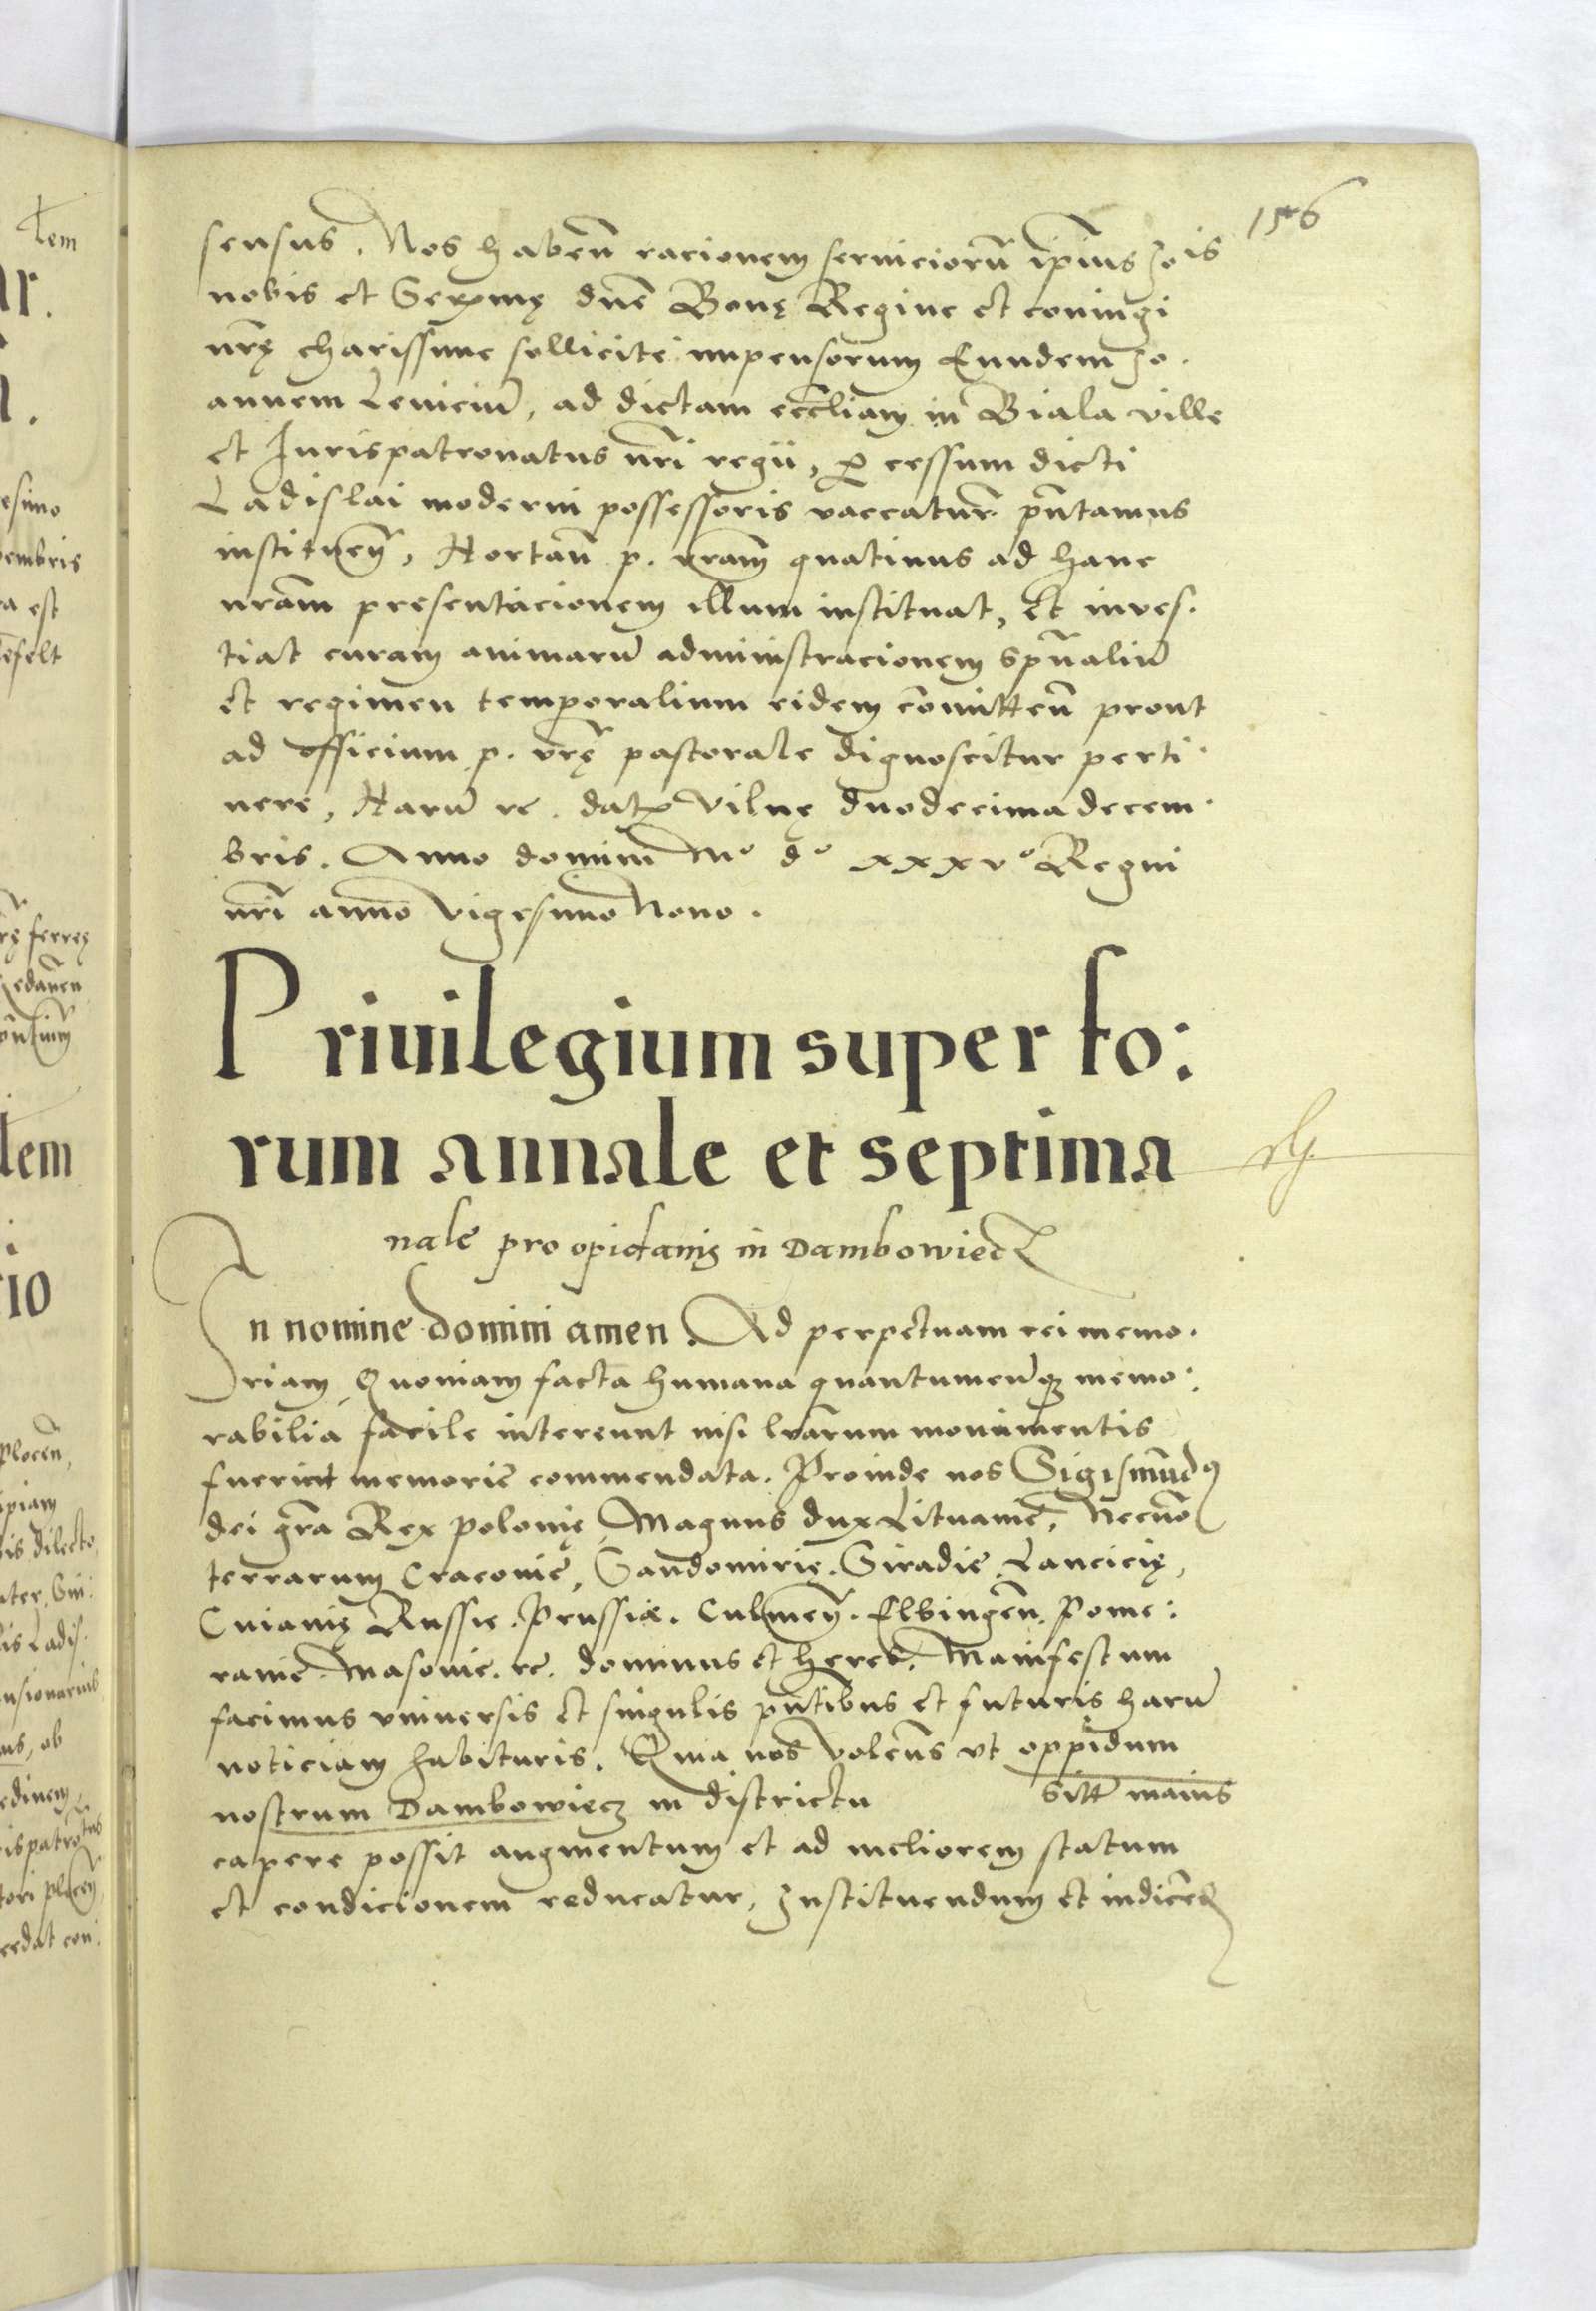 156
sensus. Nos habeñ racionem serviciorũ ip̃ius Jois
nobis et Serme dñe Bonę Regine et coniugi
nr̃ę charissime sollicite impensorum Eundem Jo.
annem Leviciũ, ad dictam eccl̃iam in Biala ville
et Jurispatronatus nr̃i regii, per cessum dicti
Ladislai moderni possessoris vaccatur̃ pñtamus
instituen̄, Hortañ p. vram̃ quatinus ad hanc
nram̃ presentacionem illum instituat, Et inves.
tiat curam animarũ administracionem sp̃ualiũ
et regimen temporalium eidem com̃itteñ prout
ad officium p. vr̃ę pastorale dignoscitur perti.
nere, Harũ re. dat Vilnę duodecima decem.
bris. Anno domini Mo do xxxvo Regni
nr̃i anno vigesimo Nono.
Privilegium super fo:
rum annale et septima
nale pro opidanis in Dambowiecz
In nomine domini amen. Ad perpetuam rei memo.
riam, Quoniam facta humana quantumcũq memo:
rabilia facile intereunt nisi lr̃arum monimentis
fuerint memorie commendata. Proinde nos Sigismũdq
dei gr̃a Rex polonię, Magnus dux Lituanie, Necnõ
terrarum Cracovie, Sandomirię. Siradie Lancicię,
Cuiavię Russie. Prussiæ. Culmen̄. Elbingeñ. Pome:
ranie. Masovie. re. dominus et heres. Manifestum
facimus universis et singulis pñtibus et futuris harũ
noticiam habituris. Quia nos voleñs ut oppidum
nostrum Dambowiecz in districtu sitũ maius
capere possit augmentum et ad meliorem statum
et condicionem reducatur, Instituendum et indicẽd